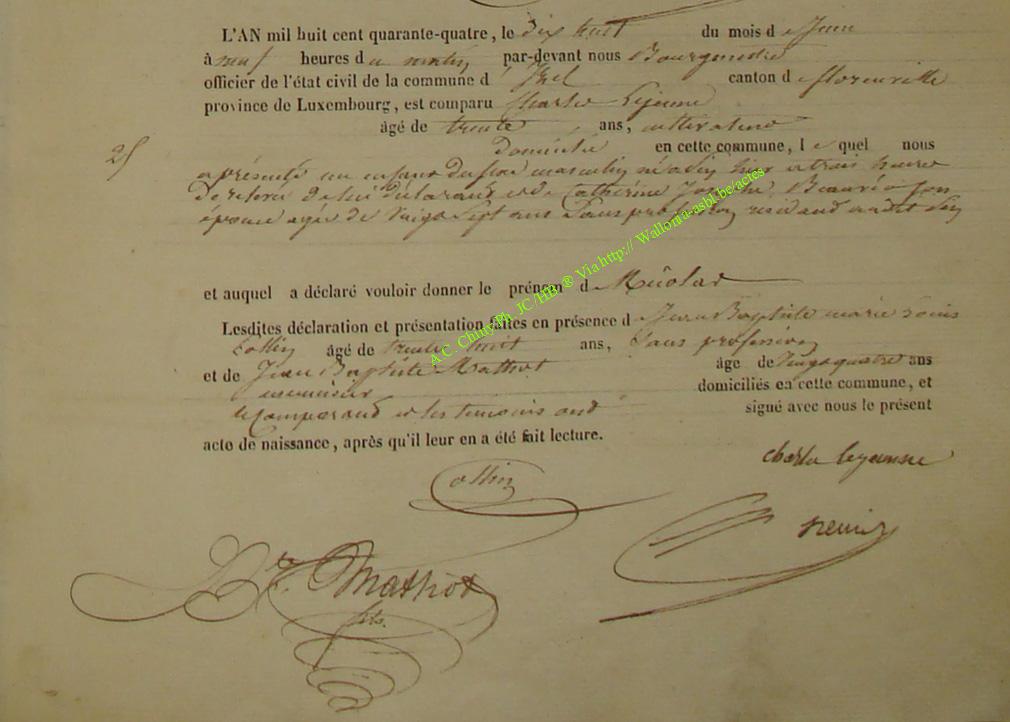 L'AN mil huit cent quarante-quatre, le dix huit du mois de Juin
à neuf heures du matin par-devant nous Bourgmestre
officier de l'état civil de la commune d' Izel canton de florenville
province de Luxembourg, est comparu Charles Lejeune
âgé de trente ans, cultivateur
25
domicilié en cette commune, le quel nous
a présenté un enfant du sexe masculin né à Izel hier a trois heures
de relevée de lui déclarant et de Catherine Beauré son
épouse agée de vingt sept ans Sans profession résidand audit Izel
et auquel a déclaré vouloir donner le prénom de Nicolas
Lesdites déclaration et présentation faites en présence de Jean Baptiste marie Louis
Collin âgé de trente huit ans, Sans profession
et de Jean Baptiste Mathot âge de vingt quatre ans
menuisier domiciliés en cette commune, et
le Comparand et les temoins ond signé avec nous le présent
acte de naissance, après qu'il leur en a été fait lecture.
charles lejeune
Collin
Bte Mathot
fils.
A.C. Chiny Ph. JC /HB. ® Via http:// Wallonia-asbl.be/actes